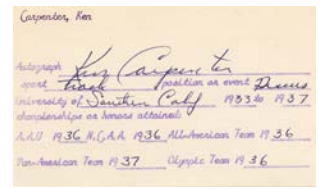 Carpenter, Ken
Autograph Ken Carpenter
sport track position or event Discus
University of Southern Calif 1933 to 1937
championships or honors attained:
A.A.U 1936 N.C.A.A. 1936 All-American Team 1936
Pan-American Team 1937 Olympic Team 1936